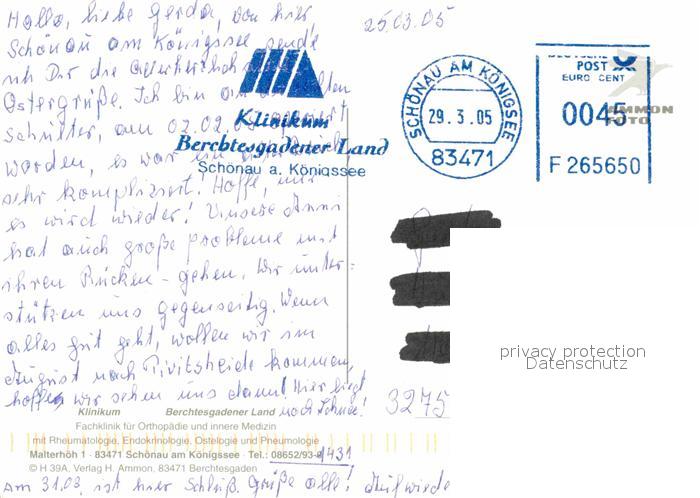 Hallo, liebe Gerda, von hier
25.03.05
Schönau am Königssee sende
ich Dir die
Ostergrüße. Ich bin an
Schulter, am 07.02.
worden, es war
sehr kompliziert! Hoffe, mir
es wird wieder! Unsere Anni
hat auch große Probleme mit
ihren Rücken - gehen. Wir unter=
stützen uns gegenseitig. Wenn
alles gut geht, wollen wir im
August nach Pivitsheide kommen,
hoffe, wir sehen uns dann! Hier liegt
noch Schnee!
Klinikum
Berchtesgadener Land
Schönau a. Königssee
SCHÖNAU AM KÖNIGSEE
29.3.05
83471
POST
EURO CENT
0045
F 265650
AMMON
FOTO
privacy protection
Datenschutz
3275
Klinikum Berchtesgadener Land
Fachklinik für Orthopädie und innere Medizin
mit Rheumatologie, Endokrinologie, Ostelogie und Pneumologie
Malterhöh 1 · 83471 Schönau am Königssee · Tel.: 08652/93-
1431
© H 39A, Verlag H. Ammon, 83471 Berchtesgaden
Am 31.03. ist hier Schluß. Grüße alle! Aufwiede